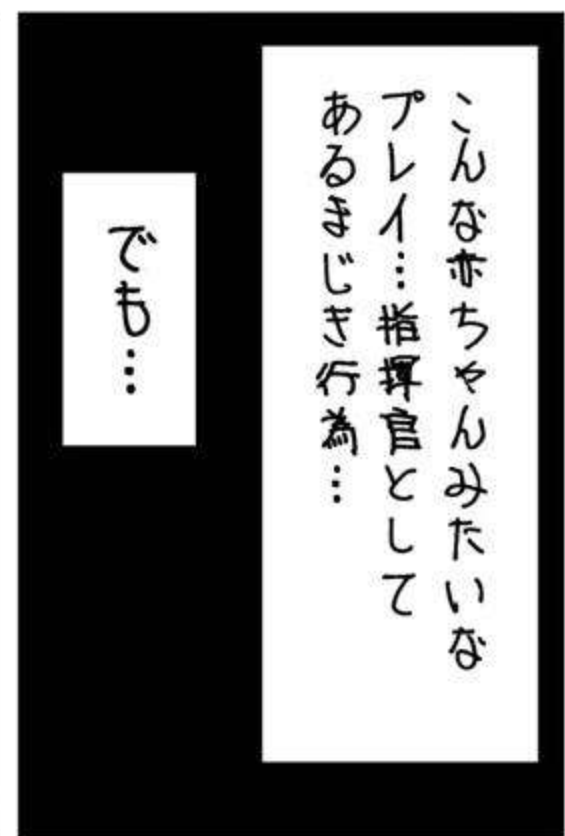 こんな赤ちゃんみたいな
プレイ…指揮官として
あるまじき行為…
でも…